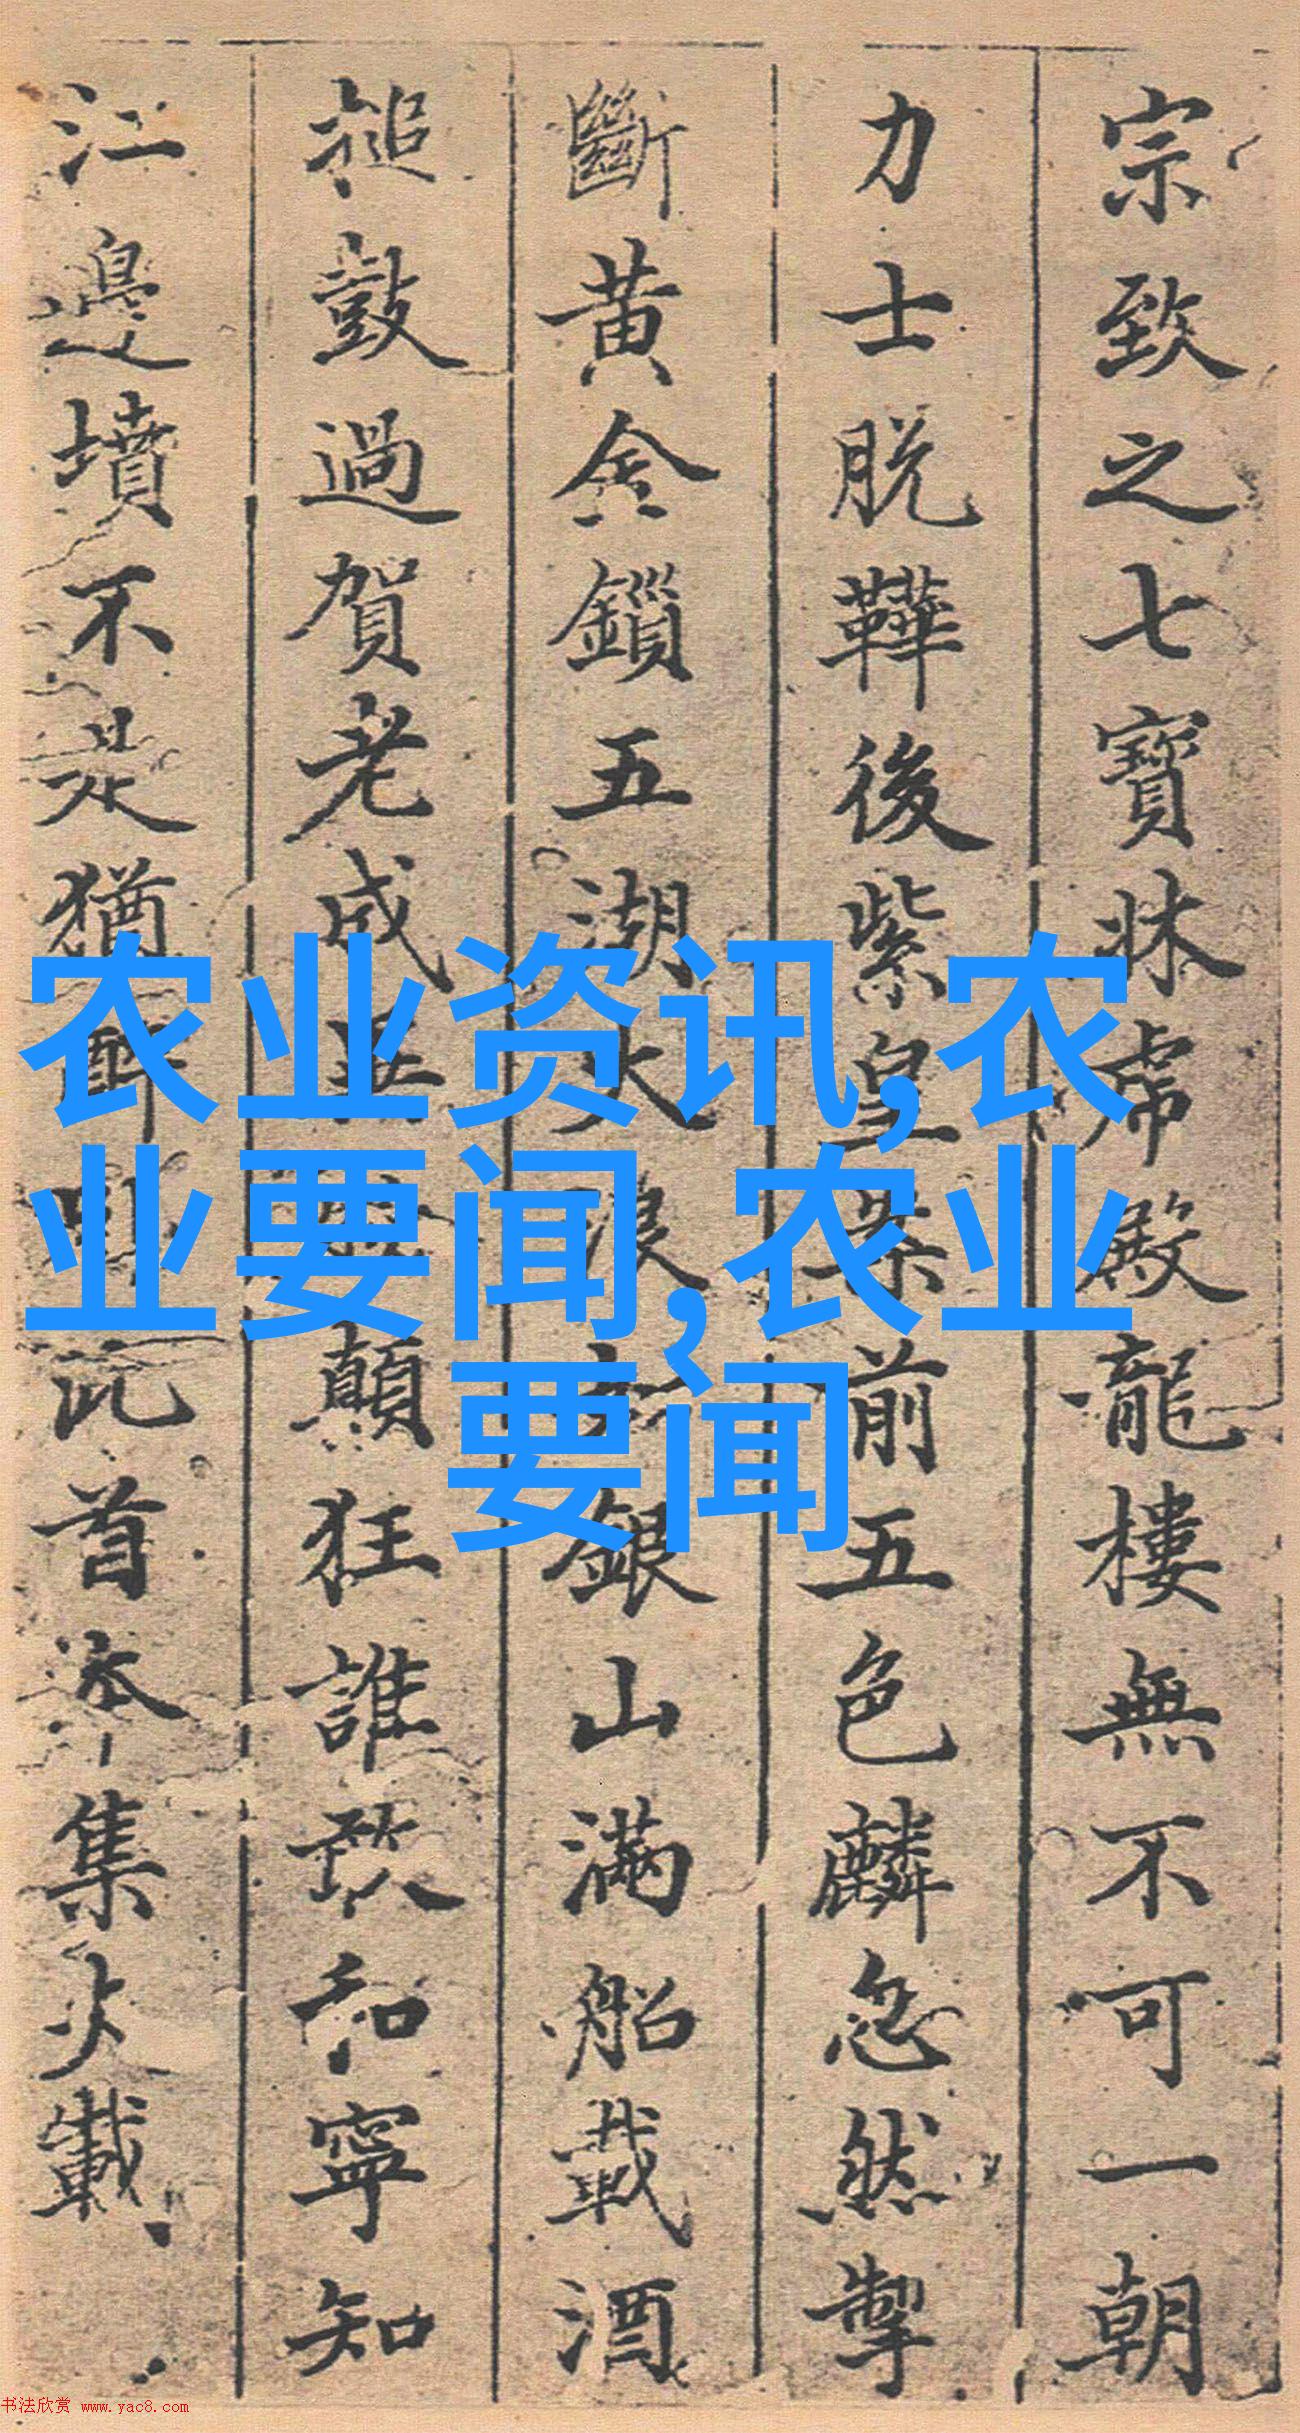 宗致之七寶牀虎殿龍樓無不可一朝
力士脱鞾後紫皇案前五色麟忽然掣
斷黄金鎖五湖大浪如銀山滿船載酒
搥鼓過賀老成顛狂誰敢和寧知
江邊墳不是猶醉卧此首本集不載
农业资讯,农
业要闻,农业
要闻
书法欣赏 www.yac8.com